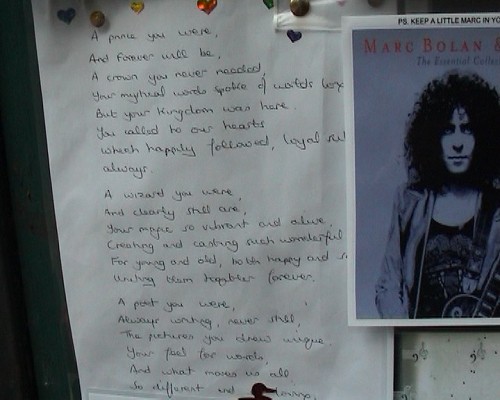 A prince you were,
And forever will be,
A crown you never needed,
Your mythical words spoke of worlds
But your kingdom was here.
You called to our hearts
Which happily followed, loyal
always.
A wizard you were,
And clearly still are,
Your magic so vibrant and alive.
Creating and casting such wonderful
For young and old, both happy and
Uniting them together forever.
A poet you were,
Always writing, never still,
The pictures you drew unique.
Your feel for words,
And what moves us all
So different and loving,
PS. KEEP A LITTLE MARC IN YO
MARC BOLAN &
The Essential Collec